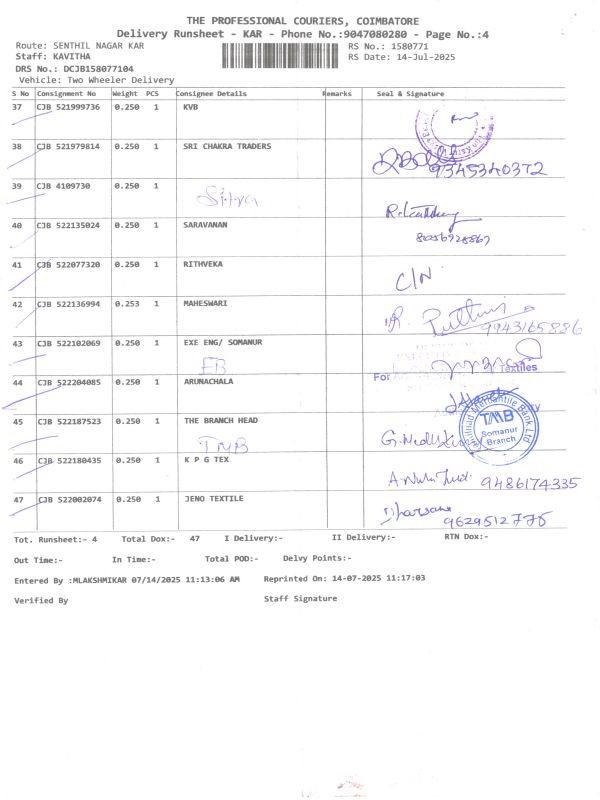 THE PROFESSIONAL COURIERS, COIMBATORE
Delivery Runsheet - KAR - Phone No.:9047080280 - Page No.:4
Route: SENTHIL NAGAR KAR RS No.: 1580771
Staff: KAVITHA RS Date: 14-Jul-2025
DRS No.: DCJB158077104
Vehicle: Two Wheeler Delivery
S No Consignment No Weight PCS Consignee Details Remarks Seal & Signature
37 CJB 521999736 0.250 1 KVB
38 CJB 521979814 0.250 1 SRI CHAKRA TRADERS
9345340372
39 CJB 4109730 0.250 1
40 CJB 522135024 0.250 1 SARAVANAN
41 CJB 522077320 0.250 1 RITHVEKA
C/N
42 CJB 522136994 0.253 1 MAHESWARI
9943165886
43 CJB 522102069 0.250 1 EXE ENG/ SOMANUR
EB
For Textiles
44 CJB 522204085 0.250 1 ARUNACHALA
45 CJB 522187523 0.250 1 THE BRANCH HEAD
TMB
Tamilnad Mercantile Bank Ltd
TMB
Somanur
Branch
46 CJB 522180435 0.250 1 K P G TEX
9486174335
47 CJB 522002074 0.250 1 JENO TEXTILE
9629512775
Tot. Runsheet:- 4 Total Dox:- 47 I Delivery:- II Delivery:- RTN Dox:-
Out Time:- In Time:- Total POD:- Delvy Points:-
Entered By :MLAKSHMIKAR 07/14/2025 11:13:06 AM Reprinted On: 14-07-2025 11:17:03
Verified By Staff Signature